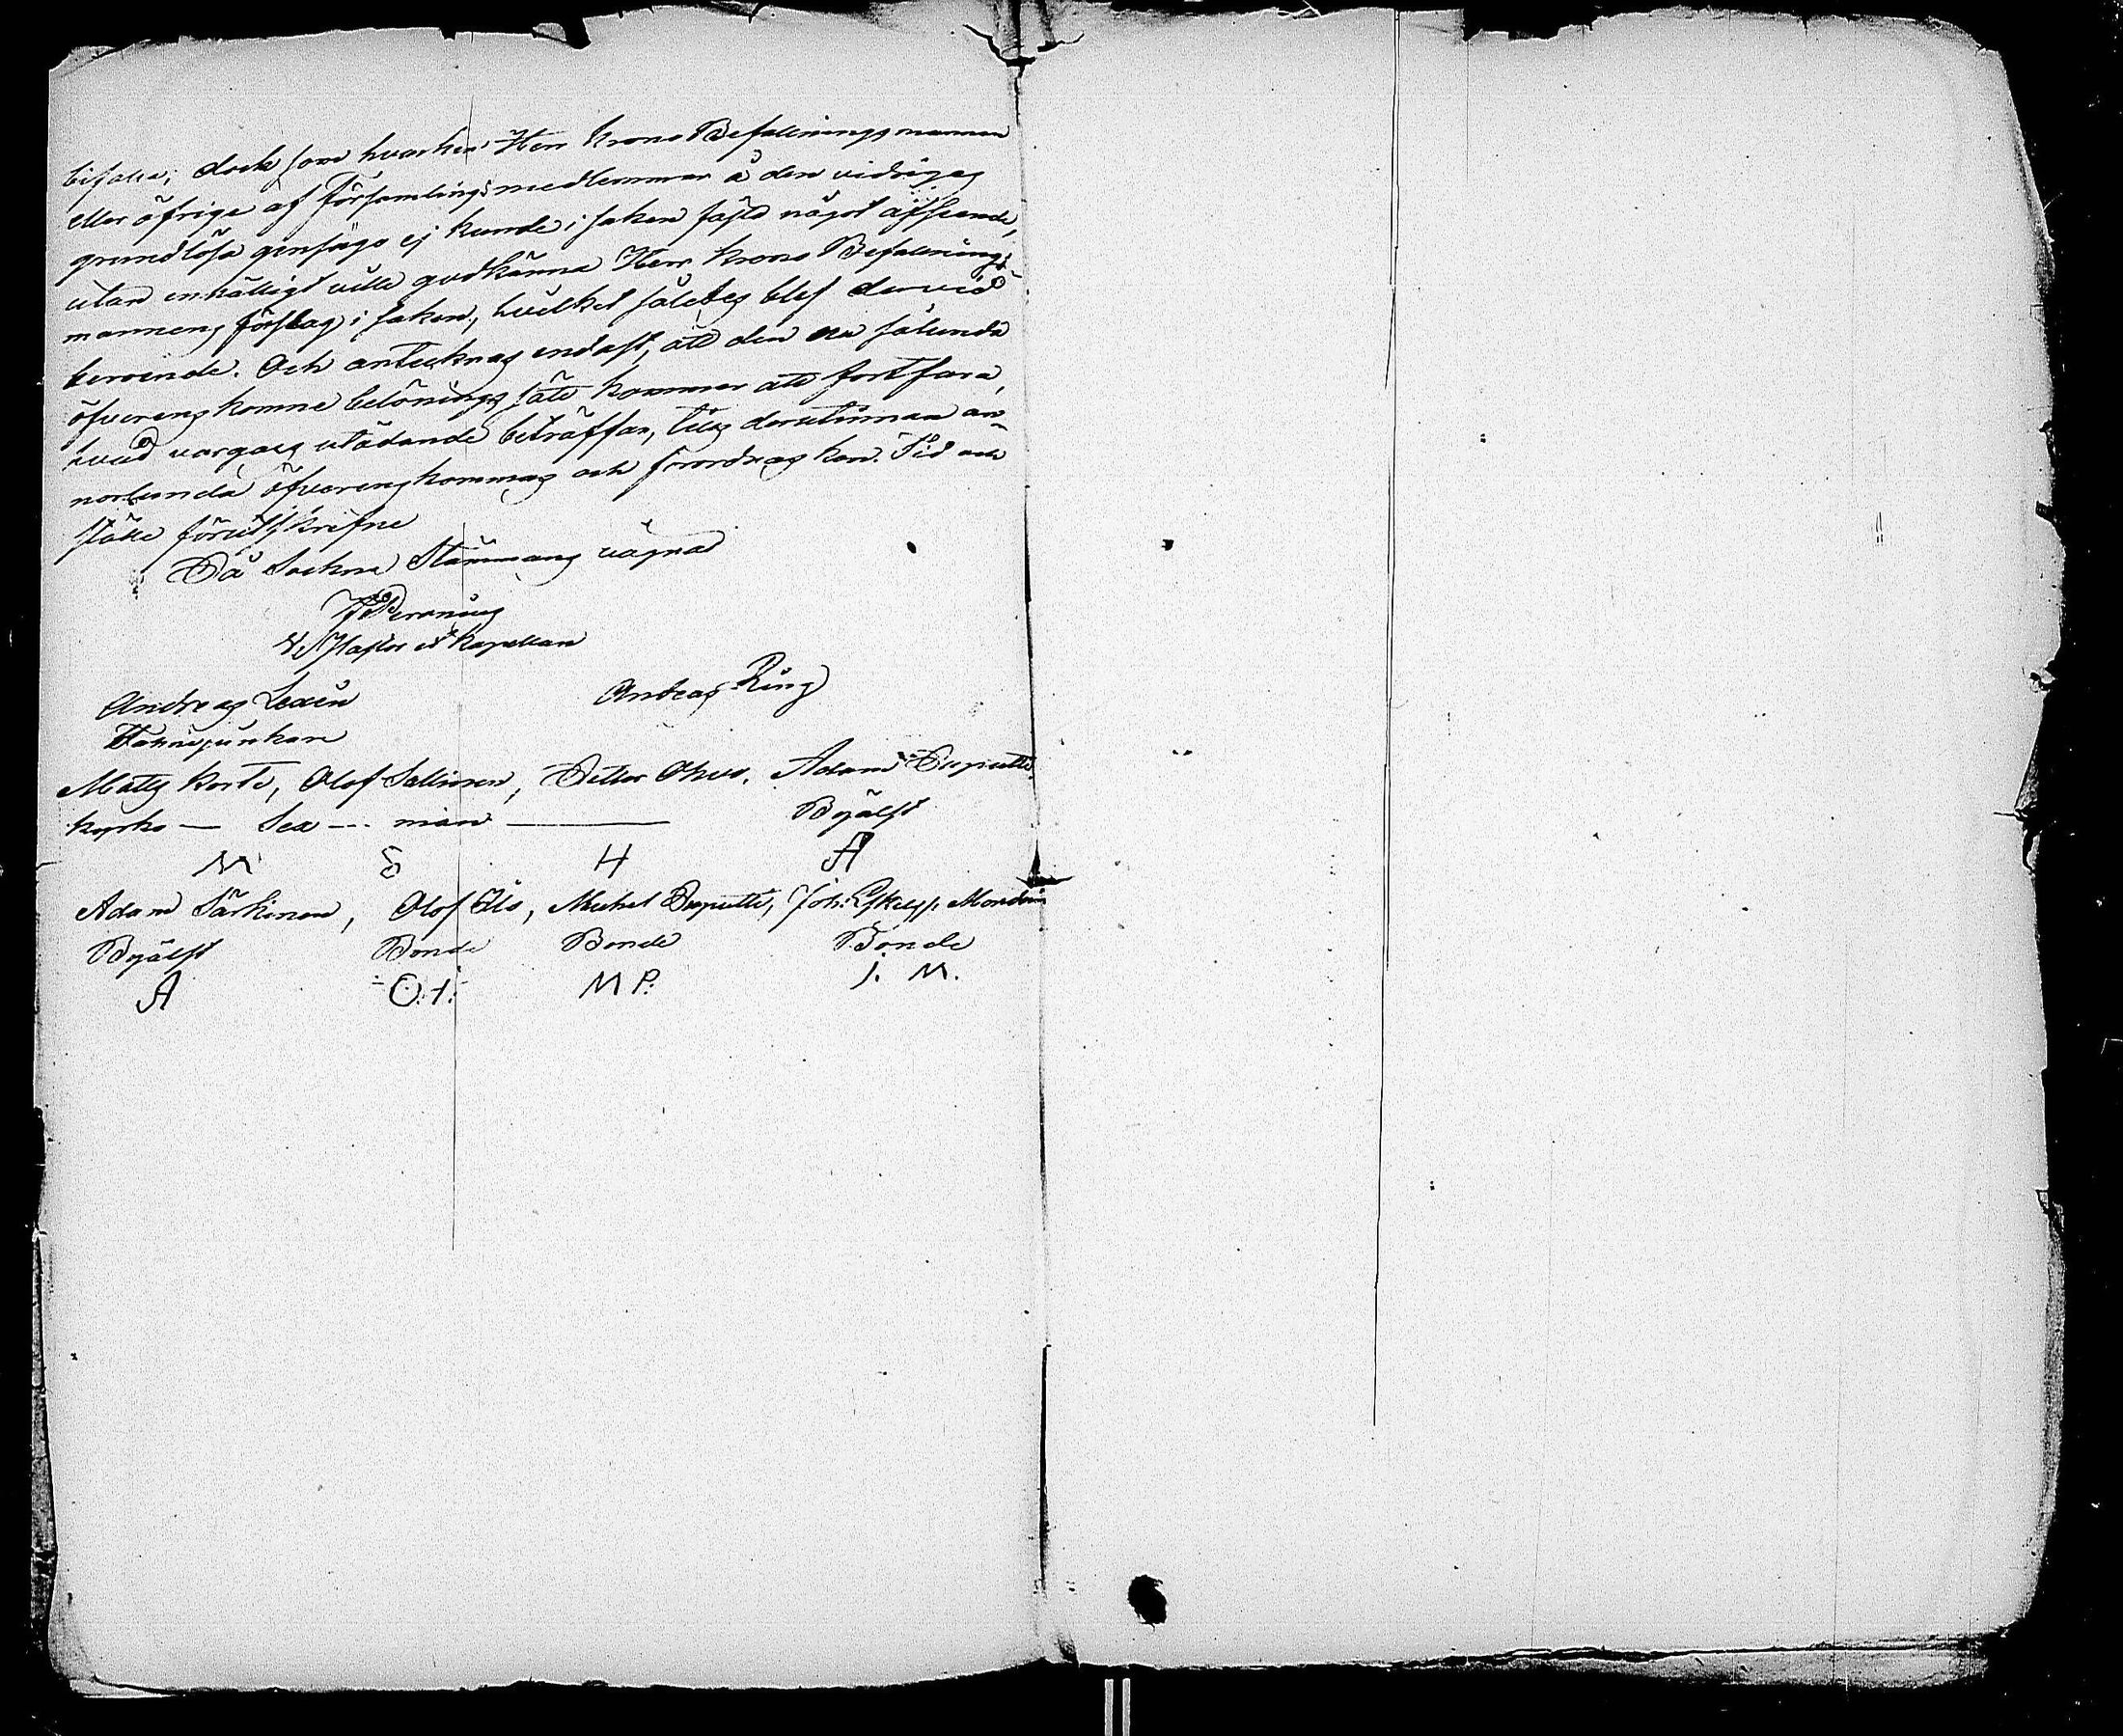 bifalla; dock som hvarken Herr Krono Befallningsmannen
eller öfrige af Församlings medlemmar å den vidriges
grundlösa gensago ej kunde i saken fästa något afseende,
utan enhälligt ville godkänna Herr Krono Befallnings-
mannens förslag i saken, hvilket således blef dervid
beroende. Och antecknas endast, att den nu sålunda
öfverenskomne belönings sätt kommer att fortfara,
hvad vargars utödande beträffar, tills derutinnan an-
norlunda öfverenskommas och förordnas kan. Tid och
ställe förutskrifne
På Sockne Stämmans vägnar
Pastor et Kapellan
Andreas Lexén Andreas Ring
Fahnejunkare
Matts Korte, Olof Sallinen, Petter Adam Parputti
Kyrko — Sex — män — Byälst
M S H A
Adam Särkinen, Olof Ilo, Michel Parputti, Joh: Mondoin
Byälst Bonde Bonde Bonde
A O: I: M P: J. M.